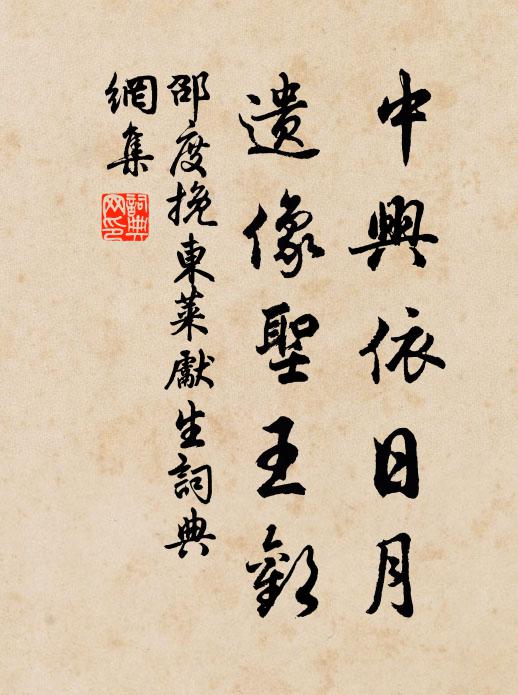 中興依日月
遺像聖王觀
邵度挽東萊獻生詞典
網集
詞典
网印